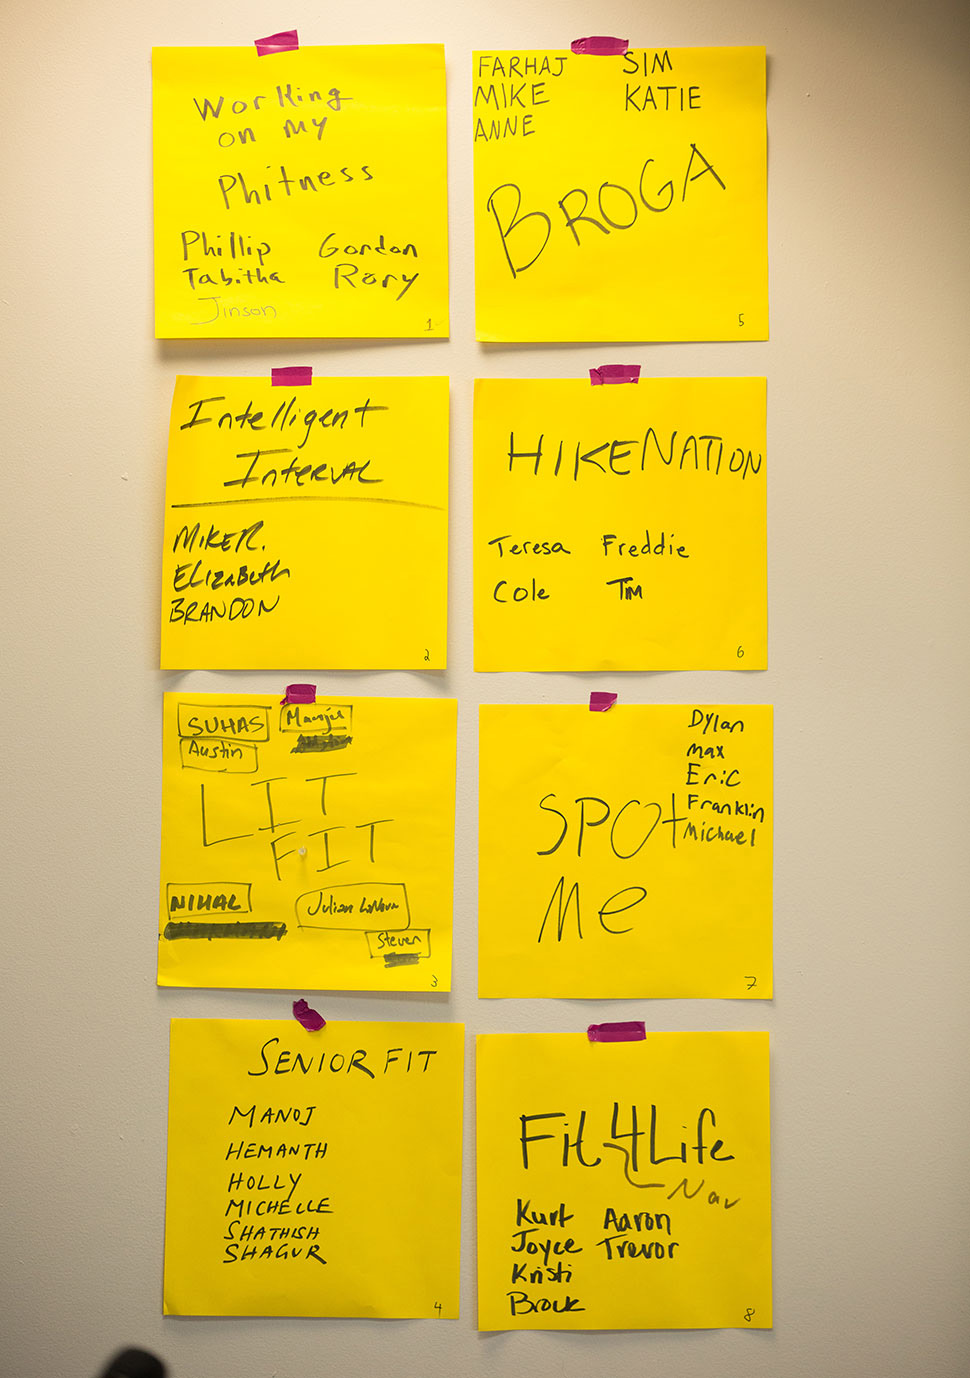 Working
on my
Phitness
Phillip Gordon
Tabitha Rory
Jinson
1
Intelligent
Interval
MIKE R.
ELIZABETH
BRANDON
2
SUHAS Manjul
Austin
LIT
FIT
NIHAL Julian
Steven
3
SENIOR FIT
MANOJ
HEMANTH
HOLLY
MICHELLE
SHATHISH
SHAGUR
4
FARHAJ SIM
MIKE KATIE
ANNE
BROGA
5
HIKENATION
Teresa Freddie
Cole TIM
6
Dylan
Max
Eric
Franklin
Michael
SPOt
Me
7
Fit4Life
Nav
Kurt Aaron
Joyce Trevor
Kristi
Brock
8